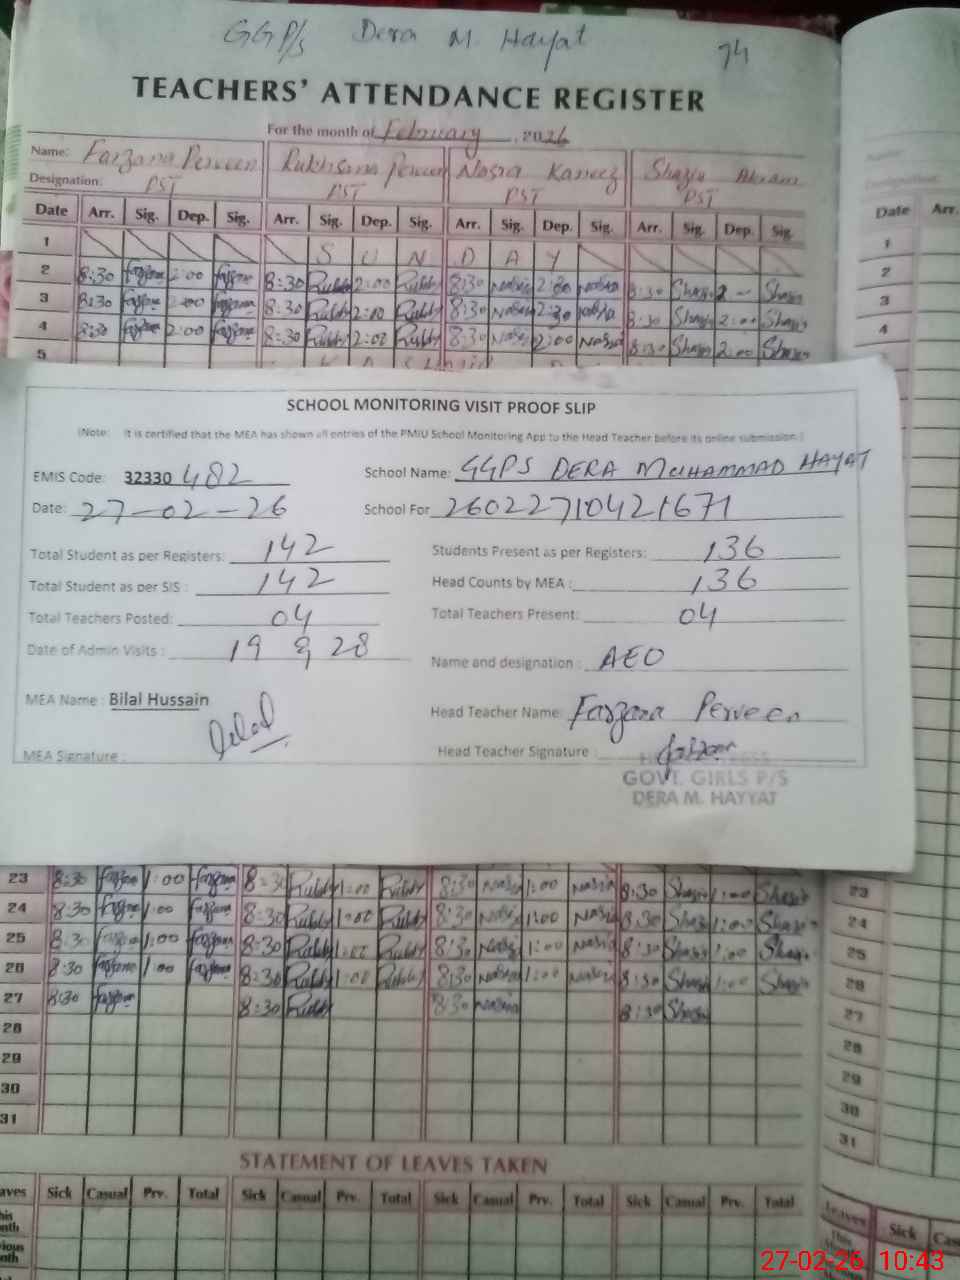 GGP/s Dera M. Hayat 74
TEACHERS' ATTENDANCE REGISTER
For the month of February, 2026
Name: Farzana Perveen Rukhsana Perveen Nasra Kaneez Shazia Akram
Designation: PST PST PST PST
Date Arr. Sig. Dep. Sig. Arr. Sig. Dep. Sig. Arr. Sig. Dep. Sig. Arr. Sig. Dep. Sig. Date Arr.
1 S U N D A Y 1
2 8:30 2:00 8:30 2:00 8:30 2:00 8:30 2 2
3 8:30 2:00 8:30 2:00 8:30 2:30 8:30 2:00 3
4 8:30 2:00 8:30 2:00 8:30 2:00 8:30 2:00 4
5
SCHOOL MONITORING VISIT PROOF SLIP
(Note: It is certified that the MEA has shown all entries of the PMIU School Monitoring App to the Head Teacher before its online submission.)
EMIS Code: 32330 482 School Name: GGPS DERA MUHAMMAD HAYAT
Date: 27-02-26 School For 26022710421671
Total Student as per Registers: 142 Students Present as per Registers: 136
Total Student as per SIS : 142 Head Counts by MEA : 136
Total Teachers Posted: 04 Total Teachers Present: 04
Date of Admin Visits : 19 & 28 Name and designation : AEO
MEA Name : Bilal Hussain Head Teacher Name: Farzana Perveen
MEA Signature : Bilal Head Teacher Signature : Farzana
GOVT. GIRLS P/S
DERA M. HAYYAT
23 8:30 Farzana 1:00 Farzana 8:30 Rukhy 1:00 Rukhy 8:30 Nasra 1:00 Nasra 8:30 Shazia 1:00 Shazia 23
24 8:30 Farzana 1:00 Farzana 8:30 Rukhy 1:00 Rukhy 8:30 Nasra 1:00 Nasra 8:30 Shazia 1:00 Shazia 24
25 8:30 Farzana 1:00 Farzana 8:30 Rukhy 1:00 Rukhy 8:30 Nasra 1:00 Nasra 8:30 Shazia 1:00 Shazia 25
26 8:30 Farzana 1:00 Farzana 8:30 Rukhy 1:00 Rukhy 8:30 Nasra 1:00 Nasra 8:30 Shazia 1:00 Shazia 26
27 8:30 Farzana 8:30 Rukhy 8:30 Nasra 8:30 Shazia 27
28 28
29 29
30 30
31 31
STATEMENT OF LEAVES TAKEN
aves Sick Casual Prv. Total Sick Casual Prv. Total Sick Casual Prv. Total Sick Casual Prv. Total Leaves Sick Cas
his
nth
vious
nth
This
27-02-26 10:43